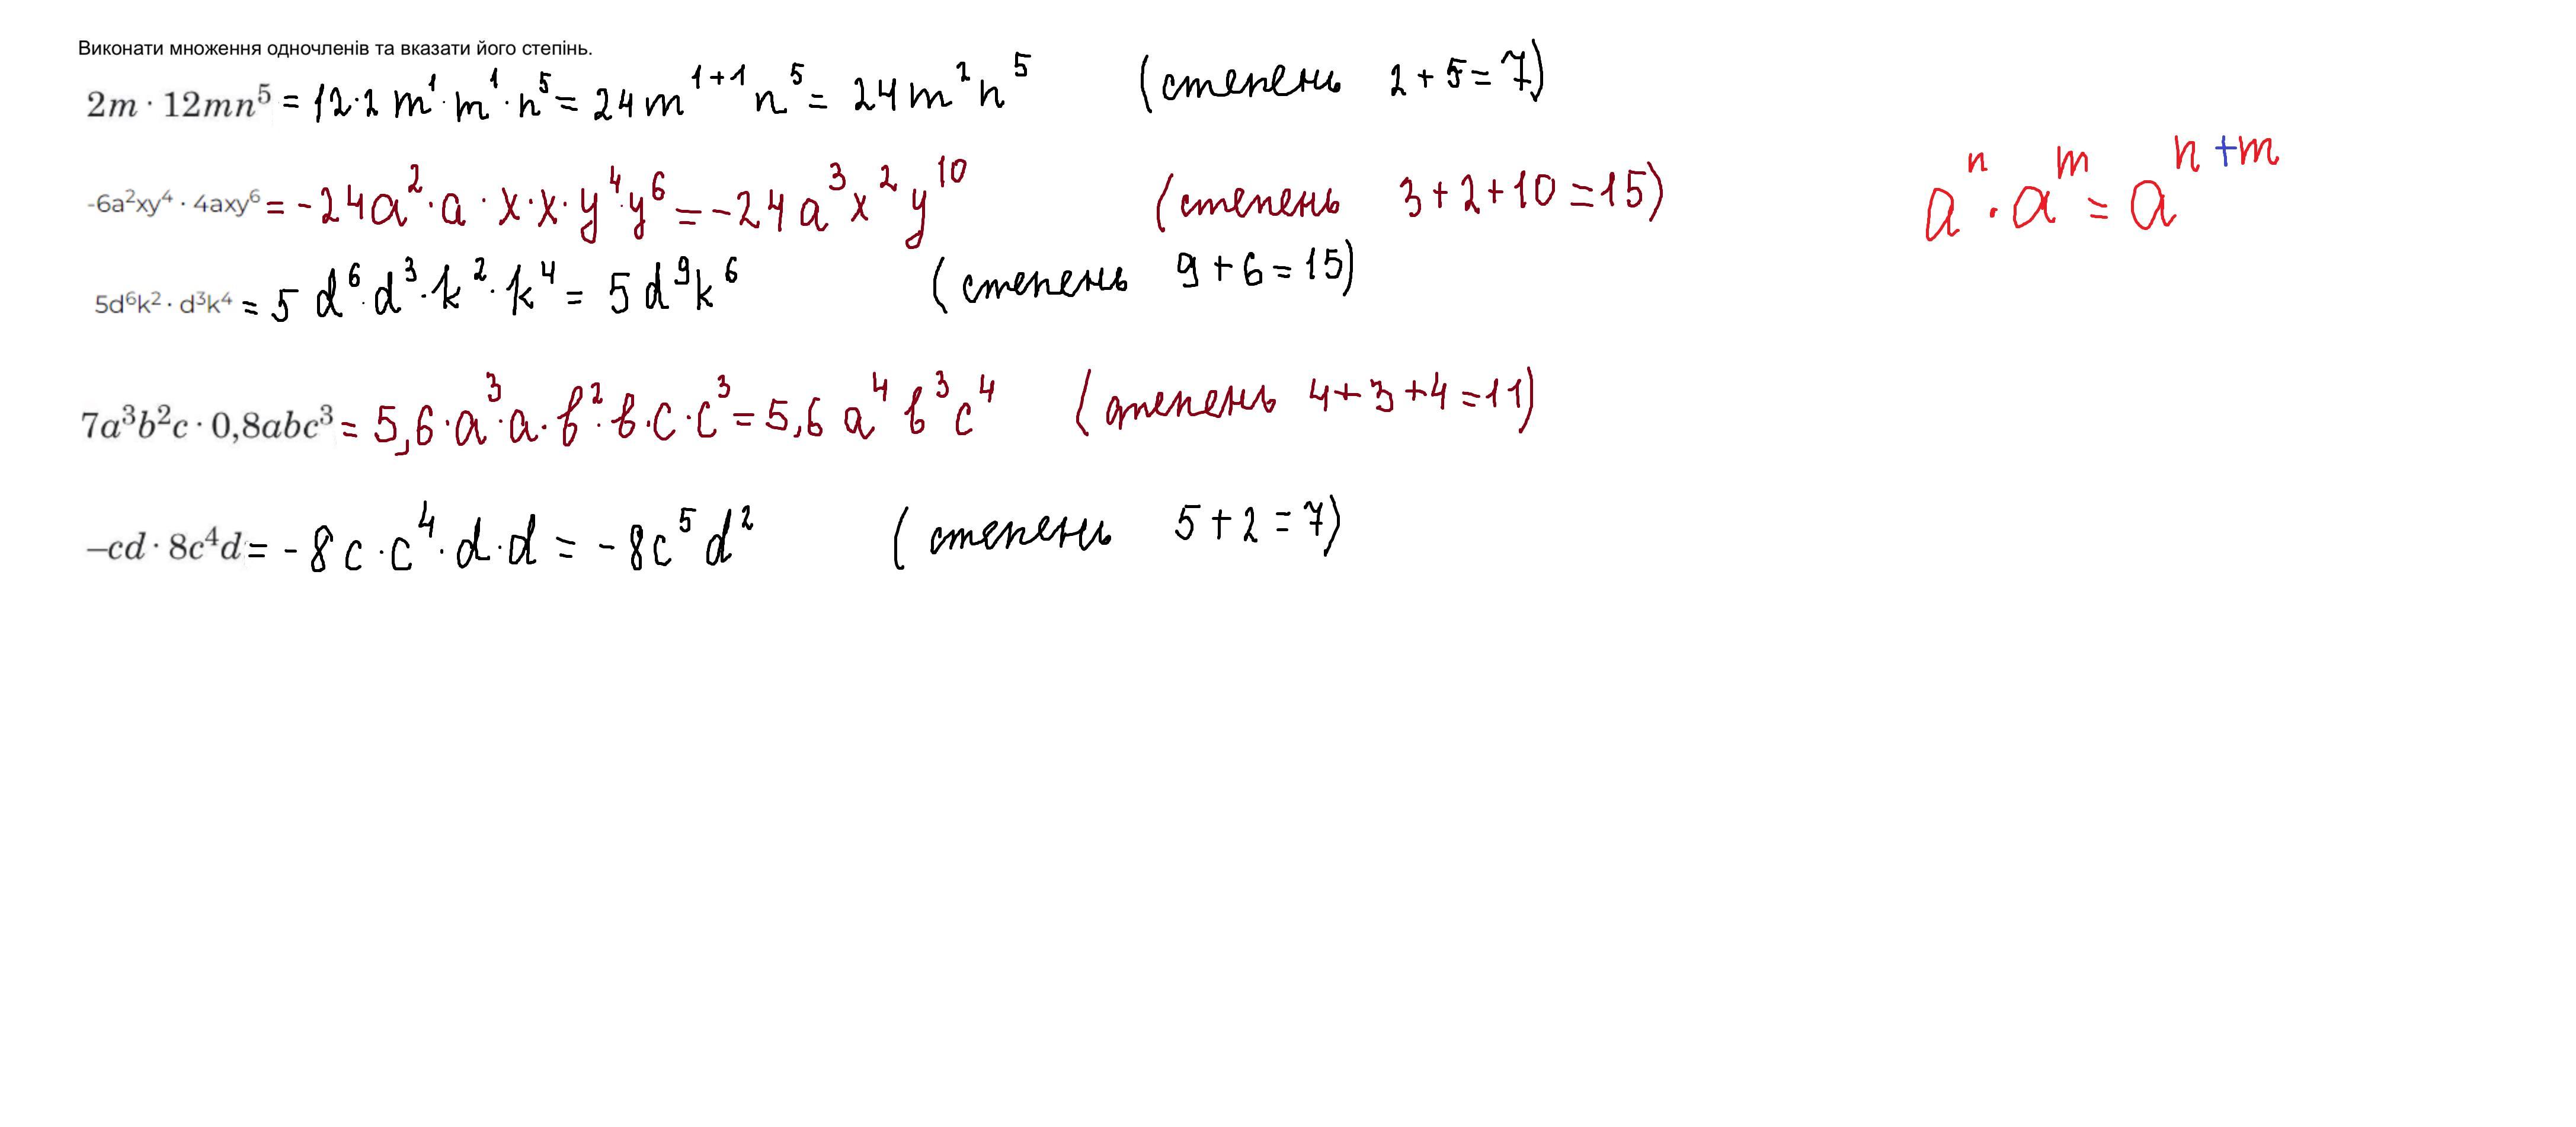 Виконати множення одночленів та вказати його степінь.
2m · 12mn⁵ = 12·2 m¹·m¹·n⁵ = 24m¹⁺¹n⁵ = 24m²n⁵ (степень 2+5=7)
-6a²xy⁴ · 4axy⁶ = -24a²·a·x·x·y⁴·y⁶ = -24a³x²y¹⁰ (степень 3+2+10=15)
aⁿ · aᵐ = aⁿ⁺ᵐ
5d⁶k² · d³k⁴ = 5 d⁶·d³·k²·k⁴ = 5d⁹k⁶ (степень 9+6=15)
7a³b²c · 0,8abc³ = 5,6·a³·a·b²·b·c·c³ = 5,6 a⁴b³c⁴ (степень 4+3+4=11)
–cd · 8c⁴d = -8c·c⁴·d·d = -8c⁵d² (степень 5+2=7)